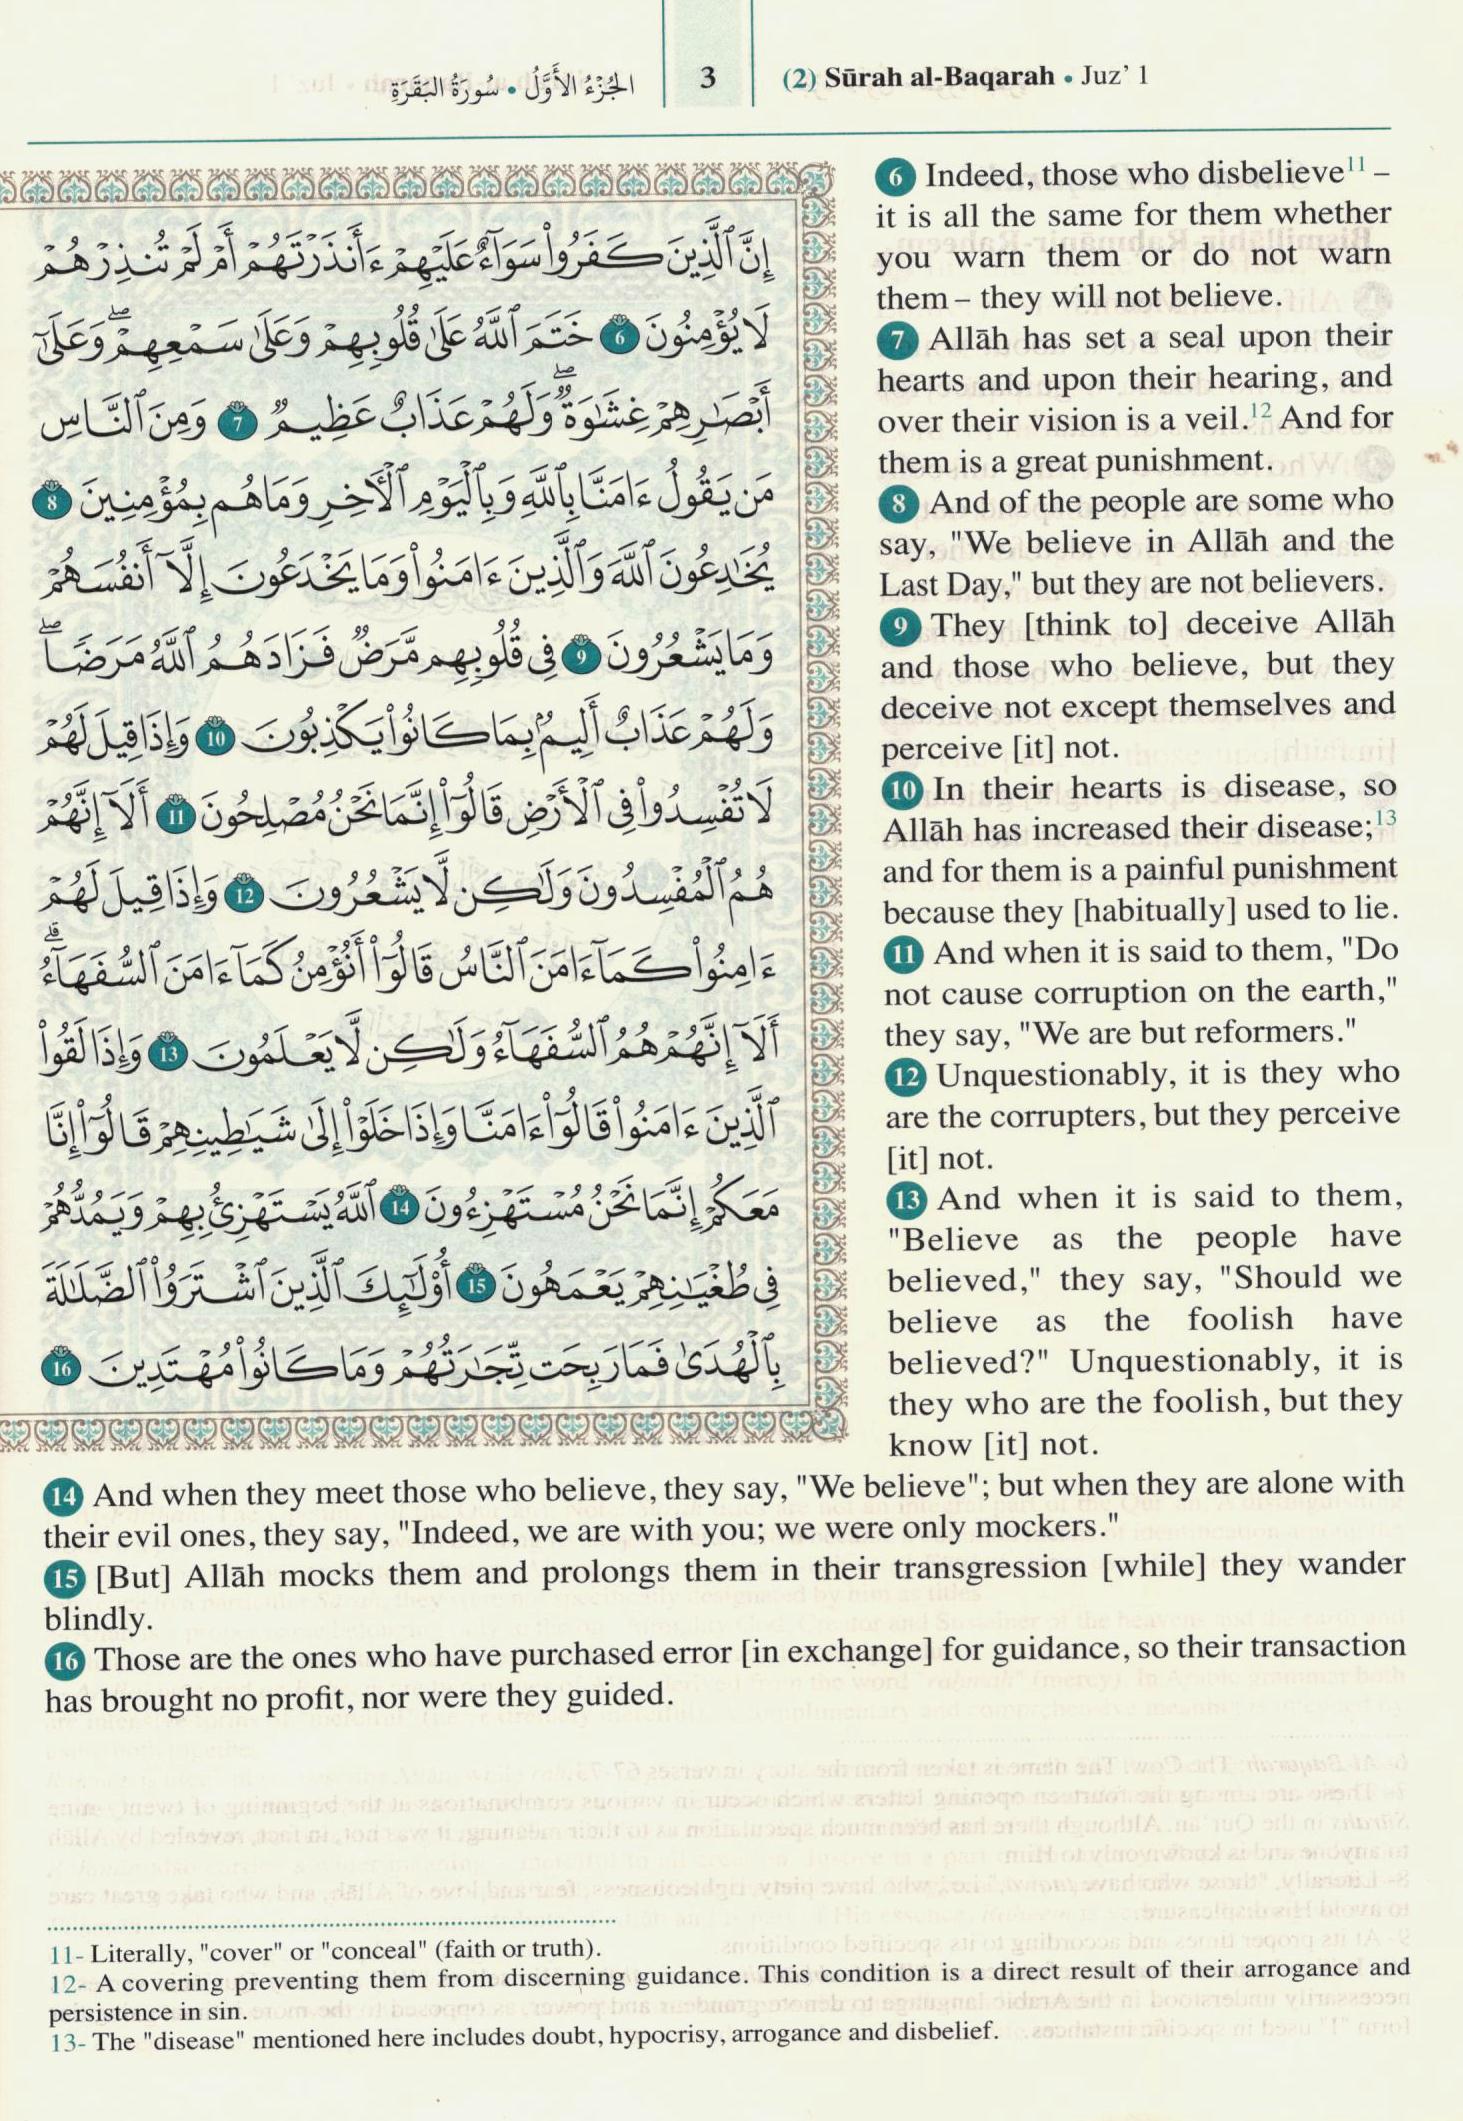 الجُزْءُ الأَوَّلُ • سُورَةُ البَقَرَةِ
3
(2) Sūrah al-Baqarah • Juz’ 1
إِنَّ ٱلَّذِينَ كَفَرُوا۟ سَوَآءٌ عَلَيْهِمْ ءَأَنذَرْتَهُمْ أَمْ لَمْ تُنذِرْهُمْ
لَا يُؤْمِنُونَ 6 خَتَمَ ٱللَّهُ عَلَىٰ قُلُوبِهِمْ وَعَلَىٰ سَمْعِهِمْ ۖ وَعَلَىٰٓ
أَبْصَـٰرِهِمْ غِشَـٰوَةٌ ۖ وَلَهُمْ عَذَابٌ عَظِيمٌ 7 وَمِنَ ٱلنَّاسِ
مَن يَقُولُ ءَامَنَّا بِٱللَّهِ وَبِٱلْيَوْمِ ٱلْأَخِرِ وَمَا هُم بِمُؤْمِنِينَ 8
يُخَـٰدِعُونَ ٱللَّهَ وَٱلَّذِينَ ءَامَنُوا۟ وَمَا يَخْدَعُونَ إِلَّآ أَنفُسَهُمْ
وَمَا يَشْعُرُونَ 9 فِى قُلُوبِهِم مَّرَضٌ فَزَادَهُمُ ٱللَّهُ مَرَضًا ۖ
وَلَهُمْ عَذَابٌ أَلِيمٌۢ بِمَا كَانُوا۟ يَكْذِبُونَ 10 وَإِذَا قِيلَ لَهُمْ
لَا تُفْسِدُوا۟ فِى ٱلْأَرْضِ قَالُوٓا۟ إِنَّمَا نَحْنُ مُصْلِحُونَ 11 أَلَآ إِنَّهُمْ
هُمُ ٱلْمُفْسِدُونَ وَلَـٰكِن لَّا يَشْعُرُونَ 12 وَإِذَا قِيلَ لَهُمْ
ءَامِنُوا۟ كَمَآ ءَامَنَ ٱلنَّاسُ قَالُوٓا۟ أَنُؤْمِنُ كَمَآ ءَامَنَ ٱلسُّفَهَآءُ ۗ
أَلَآ إِنَّهُمْ هُمُ ٱلسُّفَهَآءُ وَلَـٰكِن لَّا يَعْلَمُونَ 13 وَإِذَا لَقُوا۟
ٱلَّذِينَ ءَامَنُوا۟ قَالُوٓا۟ ءَامَنَّا وَإِذَا خَلَوْا۟ إِلَىٰ شَيَـٰطِينِهِمْ قَالُوٓا۟ إِنَّا
مَعَكُمْ إِنَّمَا نَحْنُ مُسْتَهْزِءُونَ 14 ٱللَّهُ يَسْتَهْزِئُ بِهِمْ وَيَمُدُّهُمْ
فِى طُغْيَـٰنِهِمْ يَعْمَهُونَ 15 أُو۟لَـٰٓئِكَ ٱلَّذِينَ ٱشْتَرَوُا۟ ٱلضَّلَـٰلَةَ
بِٱلْهُدَىٰ فَمَا رَبِحَت تِّجَـٰرَتُهُمْ وَمَا كَانُوا۟ مُهْتَدِينَ 16
6 Indeed, those who disbelieve11 –
it is all the same for them whether
you warn them or do not warn
them – they will not believe.
7 Allāh has set a seal upon their
hearts and upon their hearing, and
over their vision is a veil.12 And for
them is a great punishment.
8 And of the people are some who
say, "We believe in Allāh and the
Last Day," but they are not believers.
9 They [think to] deceive Allāh
and those who believe, but they
deceive not except themselves and
perceive [it] not.
10 In their hearts is disease, so
Allāh has increased their disease;13
and for them is a painful punishment
because they [habitually] used to lie.
11 And when it is said to them, "Do
not cause corruption on the earth,"
they say, "We are but reformers."
12 Unquestionably, it is they who
are the corrupters, but they perceive
[it] not.
13 And when it is said to them,
"Believe as the people have
believed," they say, "Should we
believe as the foolish have
believed?" Unquestionably, it is
they who are the foolish, but they
know [it] not.
14 And when they meet those who believe, they say, "We believe"; but when they are alone with
their evil ones, they say, "Indeed, we are with you; we were only mockers."
15 [But] Allāh mocks them and prolongs them in their transgression [while] they wander
blindly.
16 Those are the ones who have purchased error [in exchange] for guidance, so their transaction
has brought no profit, nor were they guided.
11- Literally, "cover" or "conceal" (faith or truth).
12- A covering preventing them from discerning guidance. This condition is a direct result of their arrogance and
persistence in sin.
13- The "disease" mentioned here includes doubt, hypocrisy, arrogance and disbelief.